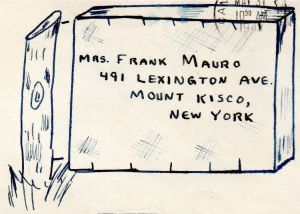 MAY
10 30 AM
194
MRS. FRANK MAURO
491 LEXINGTON AVE.
MOUNT KISCO,
NEW YORK